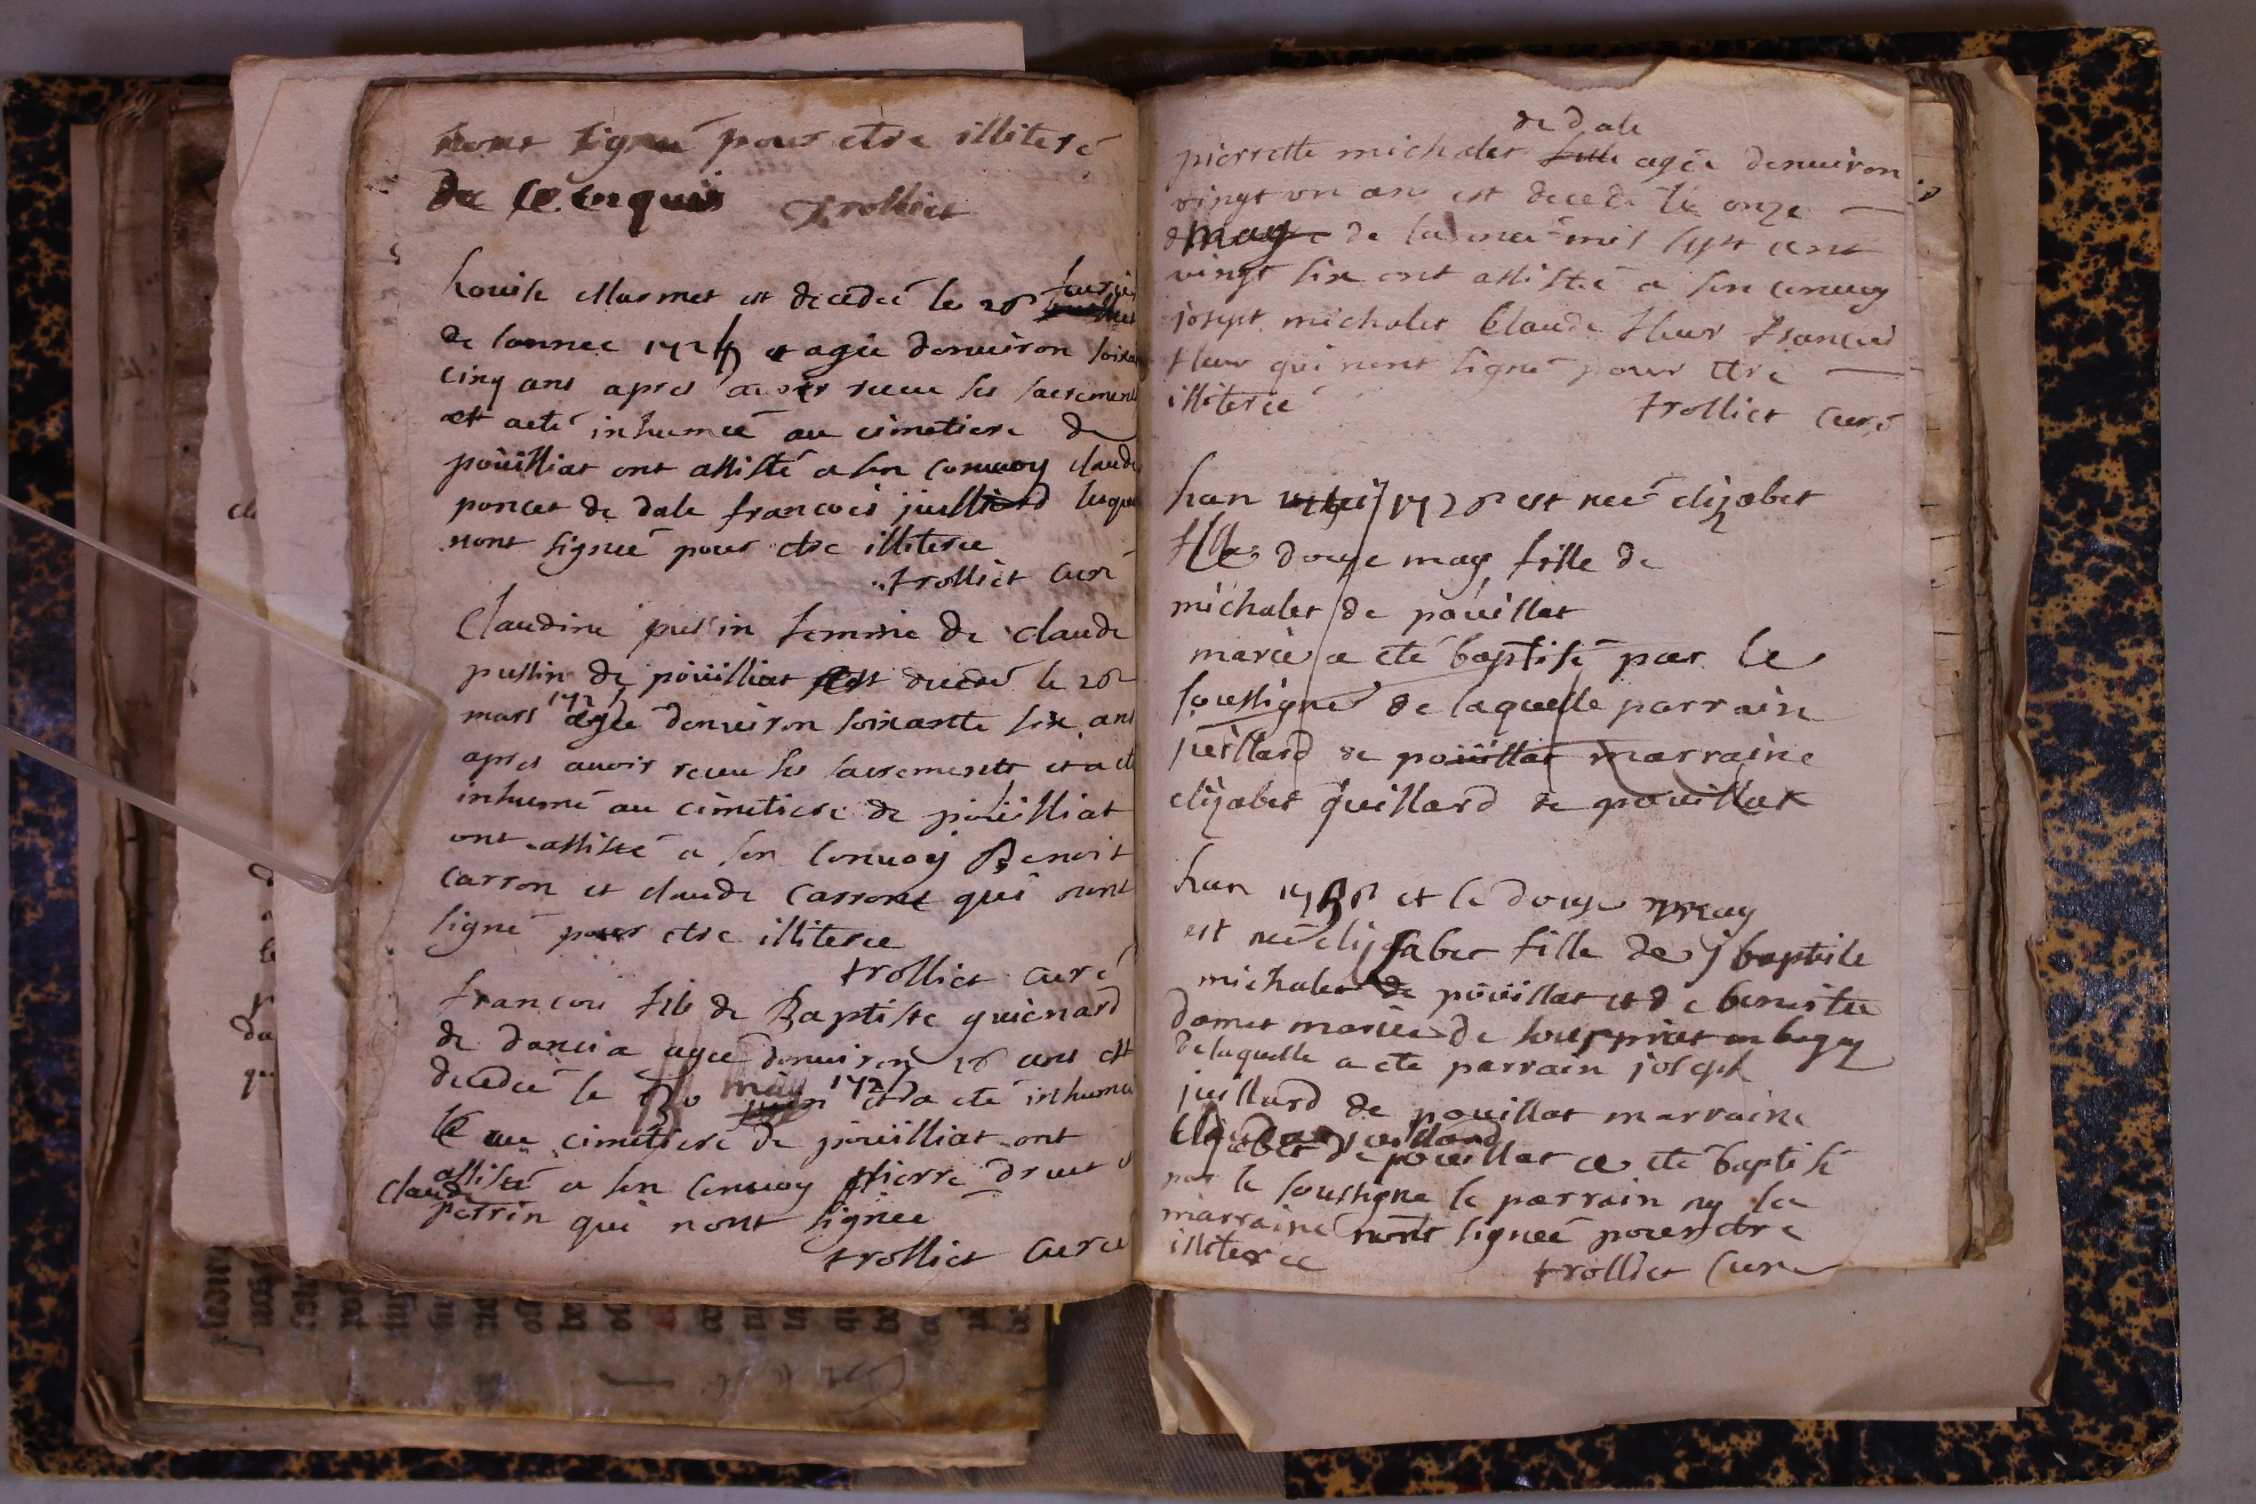 nont signé pour etre illiteré
de ce enquis trolliet
Louise Marmet est decedeé le 26 feurier
de lannee 1726 et agée denuiron soixante
cinq ans apres auoir receu ses sacrements
et a eté inhumeé au cimetiere de
pöuilliat ont assisté a son conuoy claude
poncet de dale francois juilliard lesquels
nont signeé pour etre illiteree
trolliet curé
Claudine pussin femme de claude
pussin de pöuilliat est decedé le 26
mars 1726 agée denuiron soixante six ans
apres auoir receu ses sacrements et a eté
inhumé au cimetiere de pöuilliat
ont assisté a son conuoy Benoit
carron et claude carront qui nont
signé pour etre illiteree
trolliet curé
francois fils de Baptiste guienard
de dancia agee denuiron 16 ans est
decedeé le 30 may 1726 et a eté inhume
au cimetiere de pöuilliat ont
assisté a son conuoy pierre druet
claude perrin qui nont signée
trolliet curé
de dale
pierrette michalet fille agée denuiron
vingt un ans est decedé le onze
may de la mil sept cent
vingt six ont assisteé a son conuoy
josept michalet Claude fleur francois
fleur qui nont signé pour etre
illitereé trolliet curé
Lan 1726 est neé elizabet
le douze may fille de
michalet de pöuillat
marieé a eté baptisé par le
soussigné de laquelle parrain
juillard de pöuillat marraine
elizabet guillard de pouillat
Lan 1726 et le douze may
est neé elizabet fille de j baptiste
michalet de pöuillat et de benoitte
domet mariés de en bugey
de laquelle a ete parrain joseph
juillard de pouillat marraine
Elizabet juillard de pouillat a eté baptisé
par le soussigne le parrain ny la
marraine nont signeé pour etre
illiteree trolliet cure